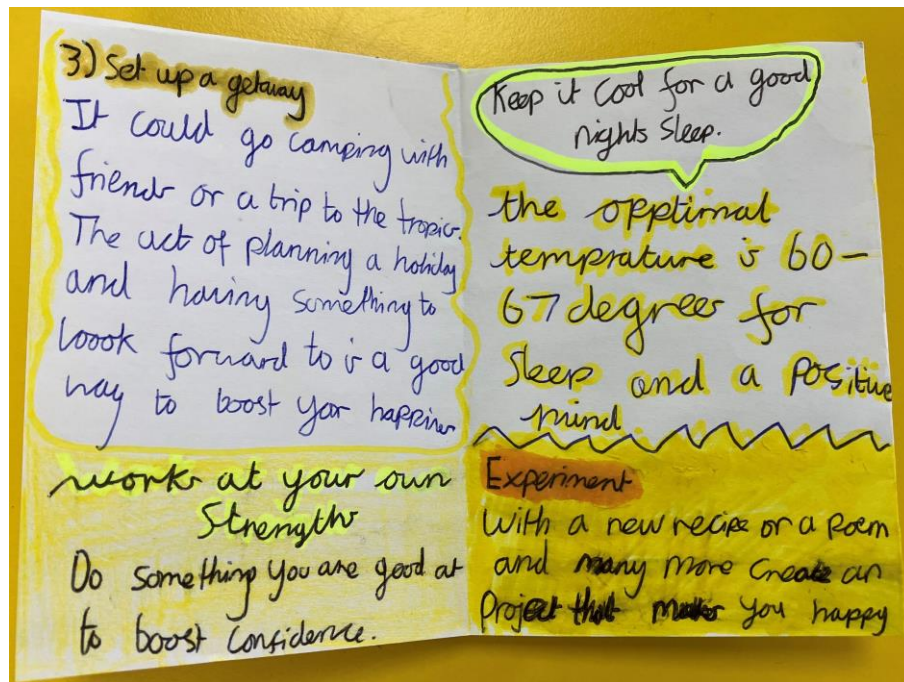 3.) Set up a getaway
It could go camping with
friends or a trip to the tropics.
The act of planning a holiday
and having something to
loook forward to is a good
way to boost your happiness
work at your own
Strengths
Do something you are good at
to boost confidence.
Keep it cool for a good
nights sleep.
the opptimal
temprature is 60-
67 degrees for
sleep and a positive
mind
Experiment
With a new recipe or a poem
and many more create an
Project that makes you happy